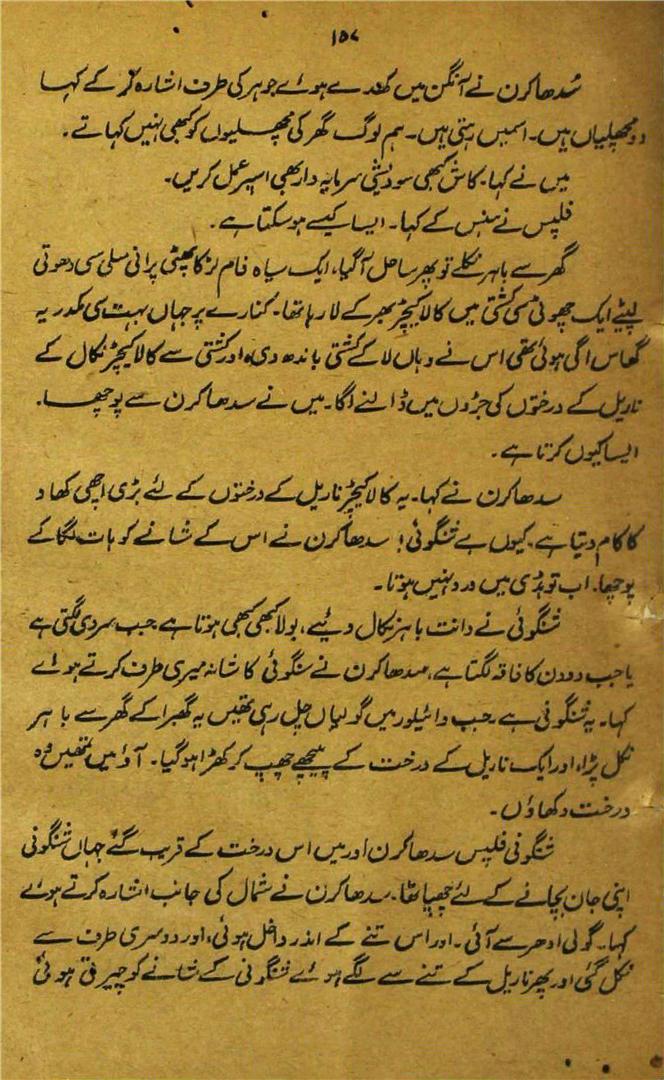 ۱۵۷
سُدھاکرن نے آنگن میں کھدے ہوئے جوہر کی طرف اشارہ کر کے کہا
دو مچھلیاں ہیں۔ اسمیں رہتی ہیں۔ ہم لوگ گھر کی مچھلیوں کو کبھی نہیں کہاتے۔
میں نے کہا۔ کاش کبھی سودیشی سرمایہ دار بھی اسپر عمل کریں۔
فلپس نے ہنس کے کہا۔ ایسا کیسے ہو سکتا ہے۔
گھر سے باہر نکلے تو پھر ساحل آگیا، ایک سیاہ فام لڑکا پھٹی پرانی سلی سی دھوتی
لپٹے ایک چھوٹی سی کشتی میں کالا کیچڑ بھر کے لا رہا تھا۔ کنارے پر جہاں بہت سی
گھاس اگی ہوئی تھی اس نے وہاں لا کے کشتی باندھ دی، اور کشتی سے کالا کیچڑ نکال کے
ناریل کے درختوں کی جڑوں میں ڈالنے لگا۔ میں نے سدھاکرن سے پوچھا۔
ایسا کیوں کرتا ہے۔
سدھاکرن نے کہا۔ یہ کالا کیچڑ ناریل کے درختوں کے لئے بڑی اچھی کھاد
کا کام دیتا ہے، کیوں بے شنگوئی! سدھاکرن نے اس کے شانے کو ہات لگا کے
پوچھا۔ اب تو ہڈی میں درد نہیں ہوتا۔
شنگوئی نے دانت باہر نکال دیئے، بولا کبھی کبھی ہوتا ہے جب سردی لگتی ہے
یا جب دو دن کا فاقہ لگتا ہے، سدھاکرن نے سنگوئی کا شانہ میری طرف کرتے ہوئے
کہا۔ یہ شنگوئی ہے، جب وائیلور میں گولیاں چل رہی تھیں یہ گھبرا کے گھر سے باہر
نکل پڑا، اور ایک ناریل کے درخت کے پیچھے چھپ کر کھڑا ہو گیا۔ آؤ میں تمھیں وہ
درخت دکھاؤں۔
شنگوئی فلپس سدھاکرن اور میں اس درخت کے قریب گئے جہاں شنگوئی
اپنی جان بچانے کے لئے چھپا تھا۔ سدھاکرن نے شمال کی جانب اشارہ کرتے ہوئے
کہا۔ گولی ادھر سے آئی۔ اور اس تنے کے اندر داخل ہوئی، اور دوسری طرف سے
نکل گئی اور پھر ناریل کے تنے سے لگے ہوئے شنگوئی کے شانے کو چیرتی ہوئی